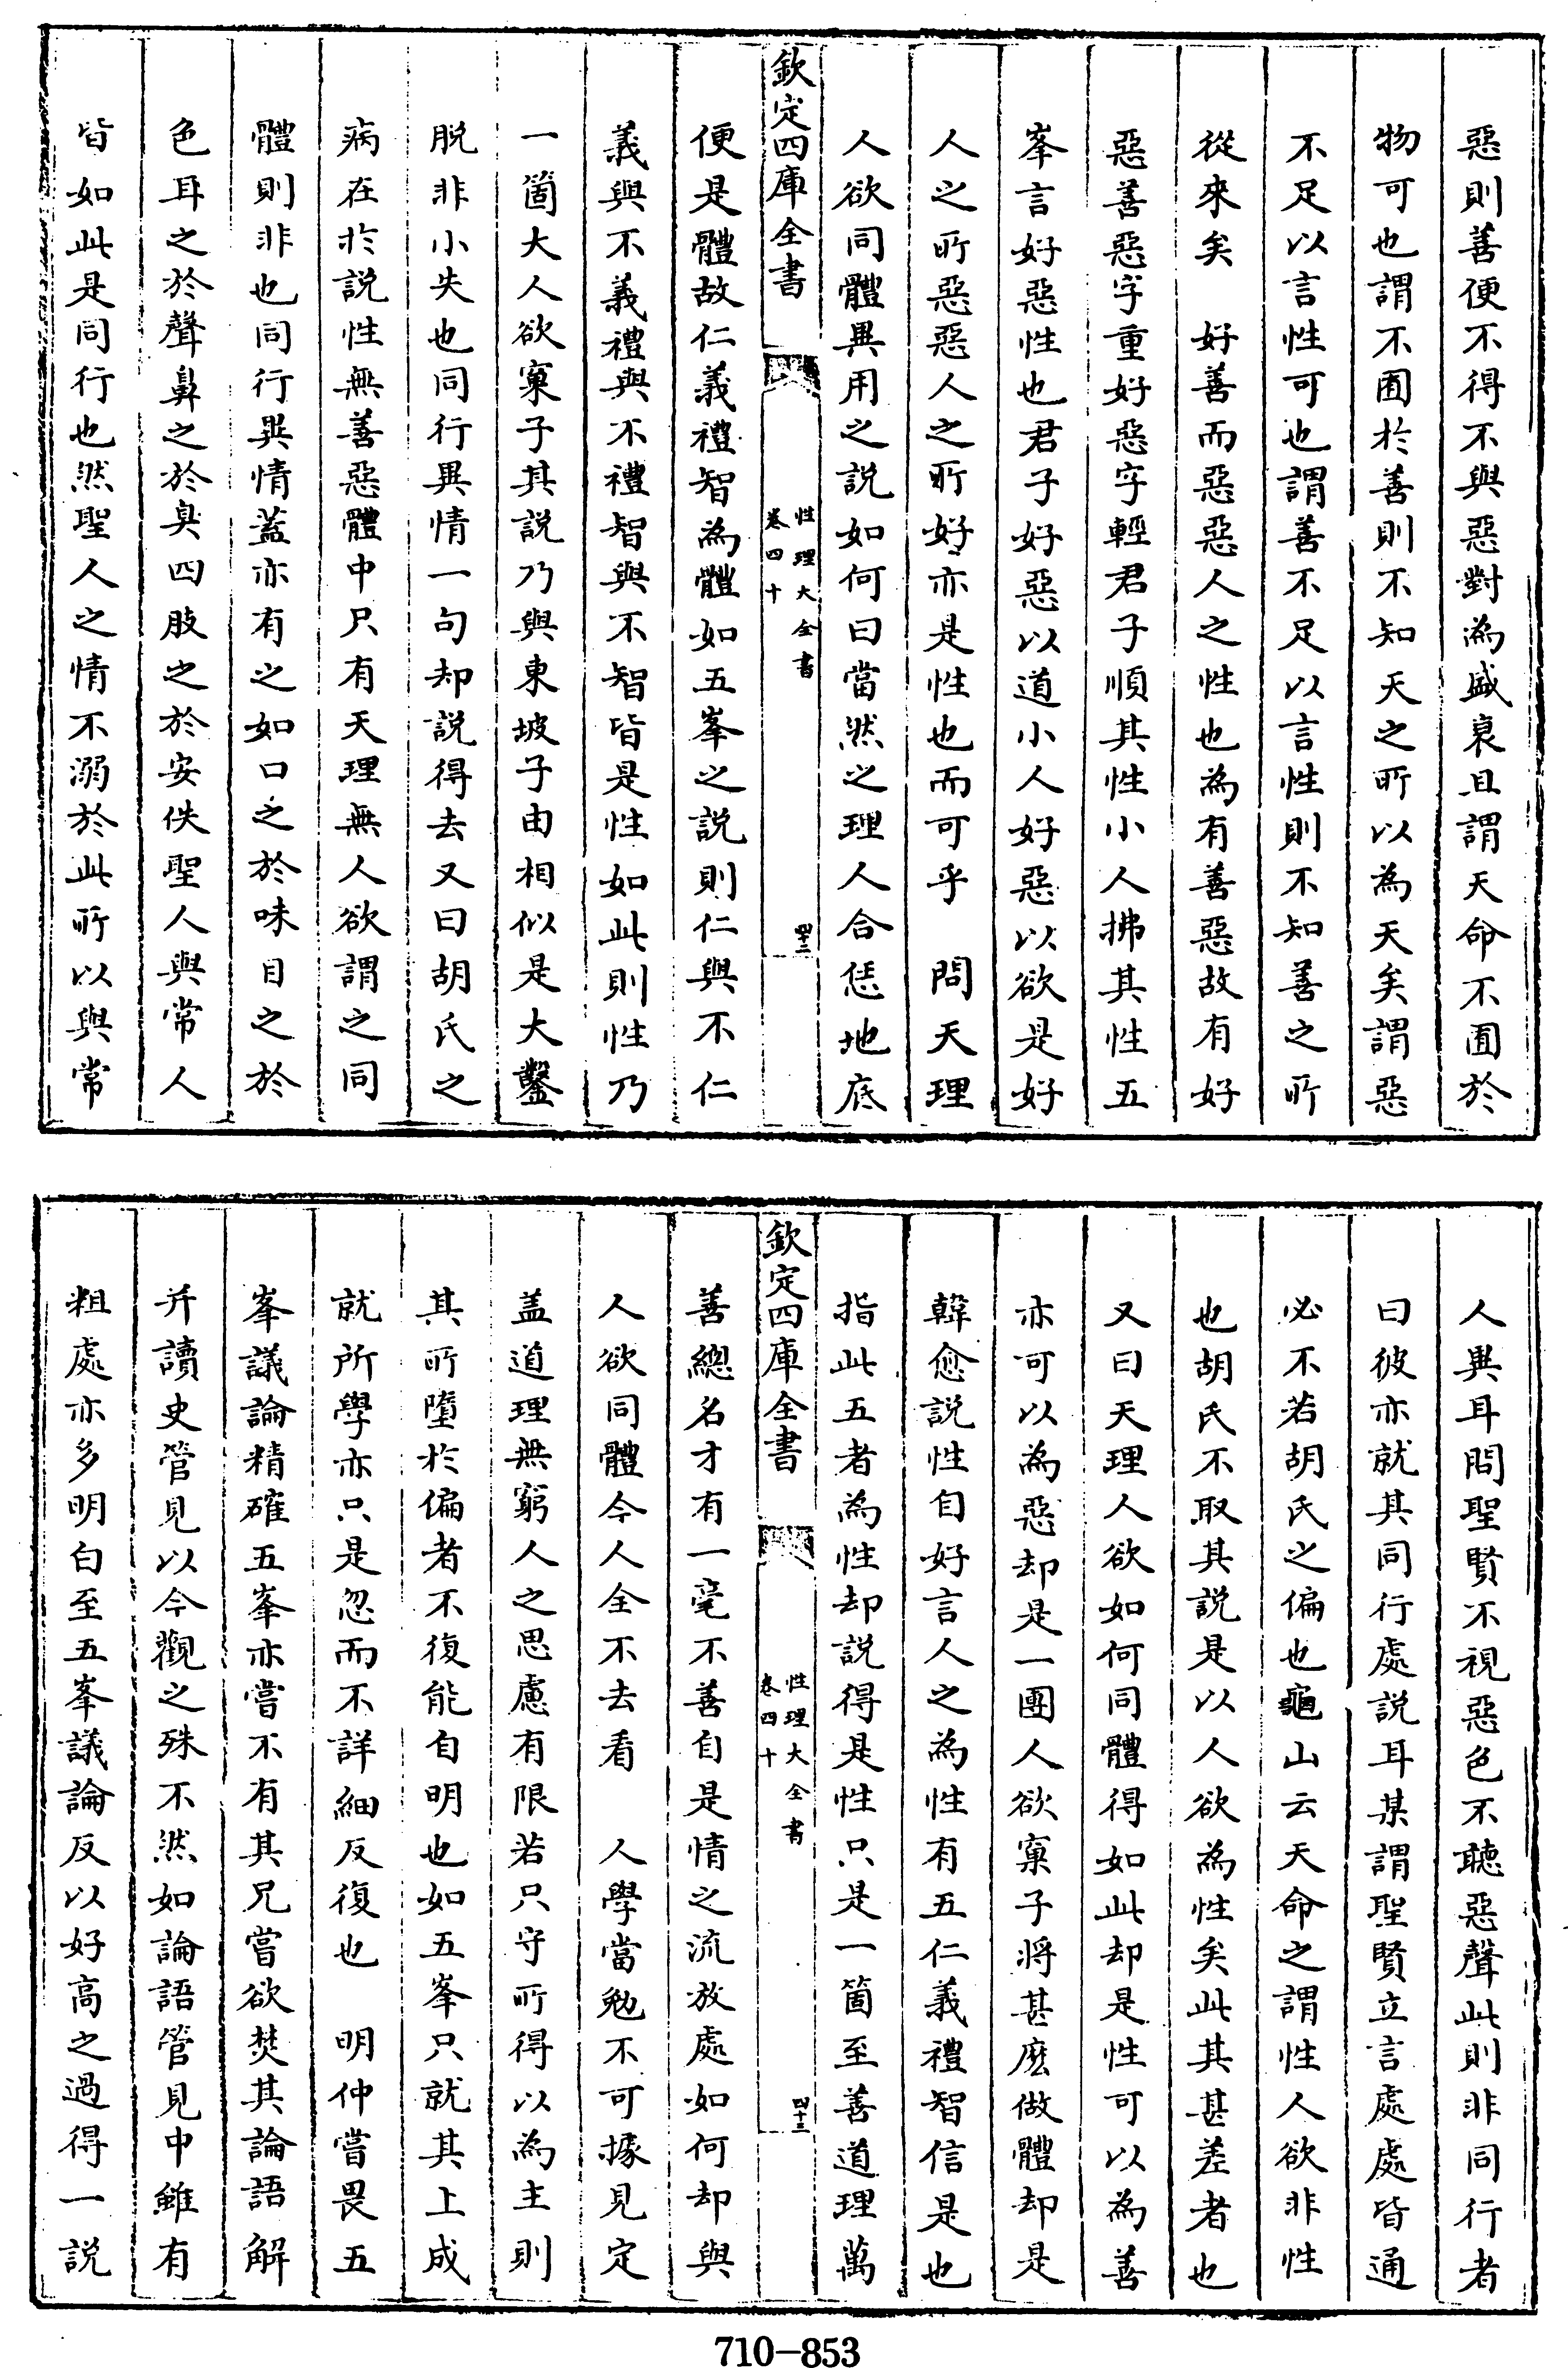 惡則善便不得不與惡對為盛衰且謂天命不囿於
物可也謂不囿於善則不知天之所以為天矣謂惡
不足以言性可也謂善不足以言性則不知善之所
從來矣　好善而惡惡人之性也為有善惡故有好
惡善惡字重好惡字輕君子順其性小人拂其性五
峯言好惡性也君子好惡以道小人好惡以欲是好
人之所惡惡人之所好亦是性也而可乎　問天理
人欲同體異用之説如何曰當然之理人合恁地底
欽定四庫全書
性理大全書
卷四十
四十三
便是體故仁義禮智為體如五峯之説則仁與不仁
義與不義禮與不禮智與不智皆是性如此則性乃
一箇大人欲窠子其説乃與東坡子由相似是大鑿
脱非小失也同行異情一句却説得去又曰胡氏之
病在於説性無善惡體中只有天理無人欲謂之同
體則非也同行異情蓋亦有之如口之於味目之於
色耳之於聲鼻之於臭四肢之於安佚聖人與常人
皆如此是同行也然聖人之情不溺於此所以與常
人異耳問聖賢不視惡色不聽惡聲此則非同行者
曰彼亦就其同行處説耳某謂聖賢立言處處皆通
必不若胡氏之偏也龜山云天命之謂性人欲非性
也胡氏不取其説是以人欲為性矣此其甚差者也
又曰天理人欲如何同體得如此却是性可以為善
亦可以為惡却是一團人欲窠子將甚麽做體却是
韓愈説性自好言人之為性有五仁義禮智信是也
指此五者為性却説得是性只是一箇至善道理萬
欽定四庫全書
性理大全書
卷四十
四十三
善總名才有一毫不善自是情之流放處如何却與
人欲同體今人全不去看　人學當勉不可據見定
盖道理無窮人之思慮有限若只守所得以為主則
其所墮於偏者不復能自明也如五峯只就其上成
就所學亦只是忽而不詳細反復也　明仲嘗畏五
峯議論精確五峯亦嘗不有其兄嘗欲焚其論語解
并讀史管見以今觀之殊不然如論語管見中雖有
粗處亦多明白至五峯議論反以好高之過得一説
710-853